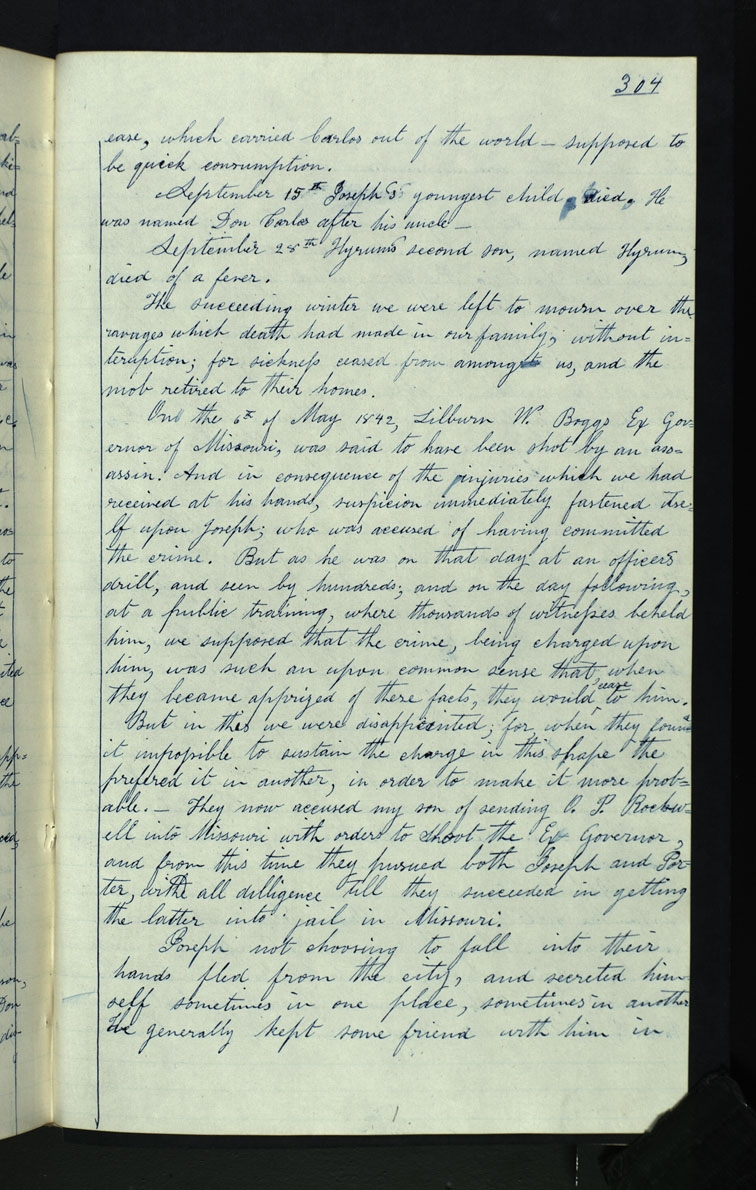 304
ease, which carried Carlos out of the world — supposed to
be quick consumption.
September 15th Joseph's youngest child died. He
was named Don Carlos after his uncle —
September 28th Hyrum's second son, named Hyrum,
died of a fever.
The succeeding winter we were left to mourn over the
ravages which death had made in our family, without in=
teruption; for sickness ceased from amongst us, and the
mob retired to their homes.
On the 6th of May 1842, Lilburn W. Boggs Ex Gov=
ernor of Missouri, was said to have been shot by an ass=
assin. And in consequence of the injuries which we had
received at his hands, suspicion immediately fastened itse=
lf upon Joseph; who was accused of having committed
the crime. But as he was on that day at an officers
drill, and seen by hundreds; and on the day following,
at a public training, where thousands of witnesses beheld
him, we supposed that the crime, being charged upon
him, was such an upon common sense that, when
they became apprized of these facts, they would cease to him.
But in this we were disappointed; for when they found
it impossible to sustain the charge in this shape the
prefered it in another, in order to make it more prob=
able. — They now accused my son of sending O. P. Rockw=
ell into Missouri with orders to shoot the Ex Governor,
and from this time they pursued both Joseph and Por=
ter, with all dilligence till they succeeded in getting
the latter into jail in Missouri.
Joseph not choosing to fall into their
hands fled from the city, and secreted him
self sometimes in one place, sometimes in another
He generally kept some friend with him in